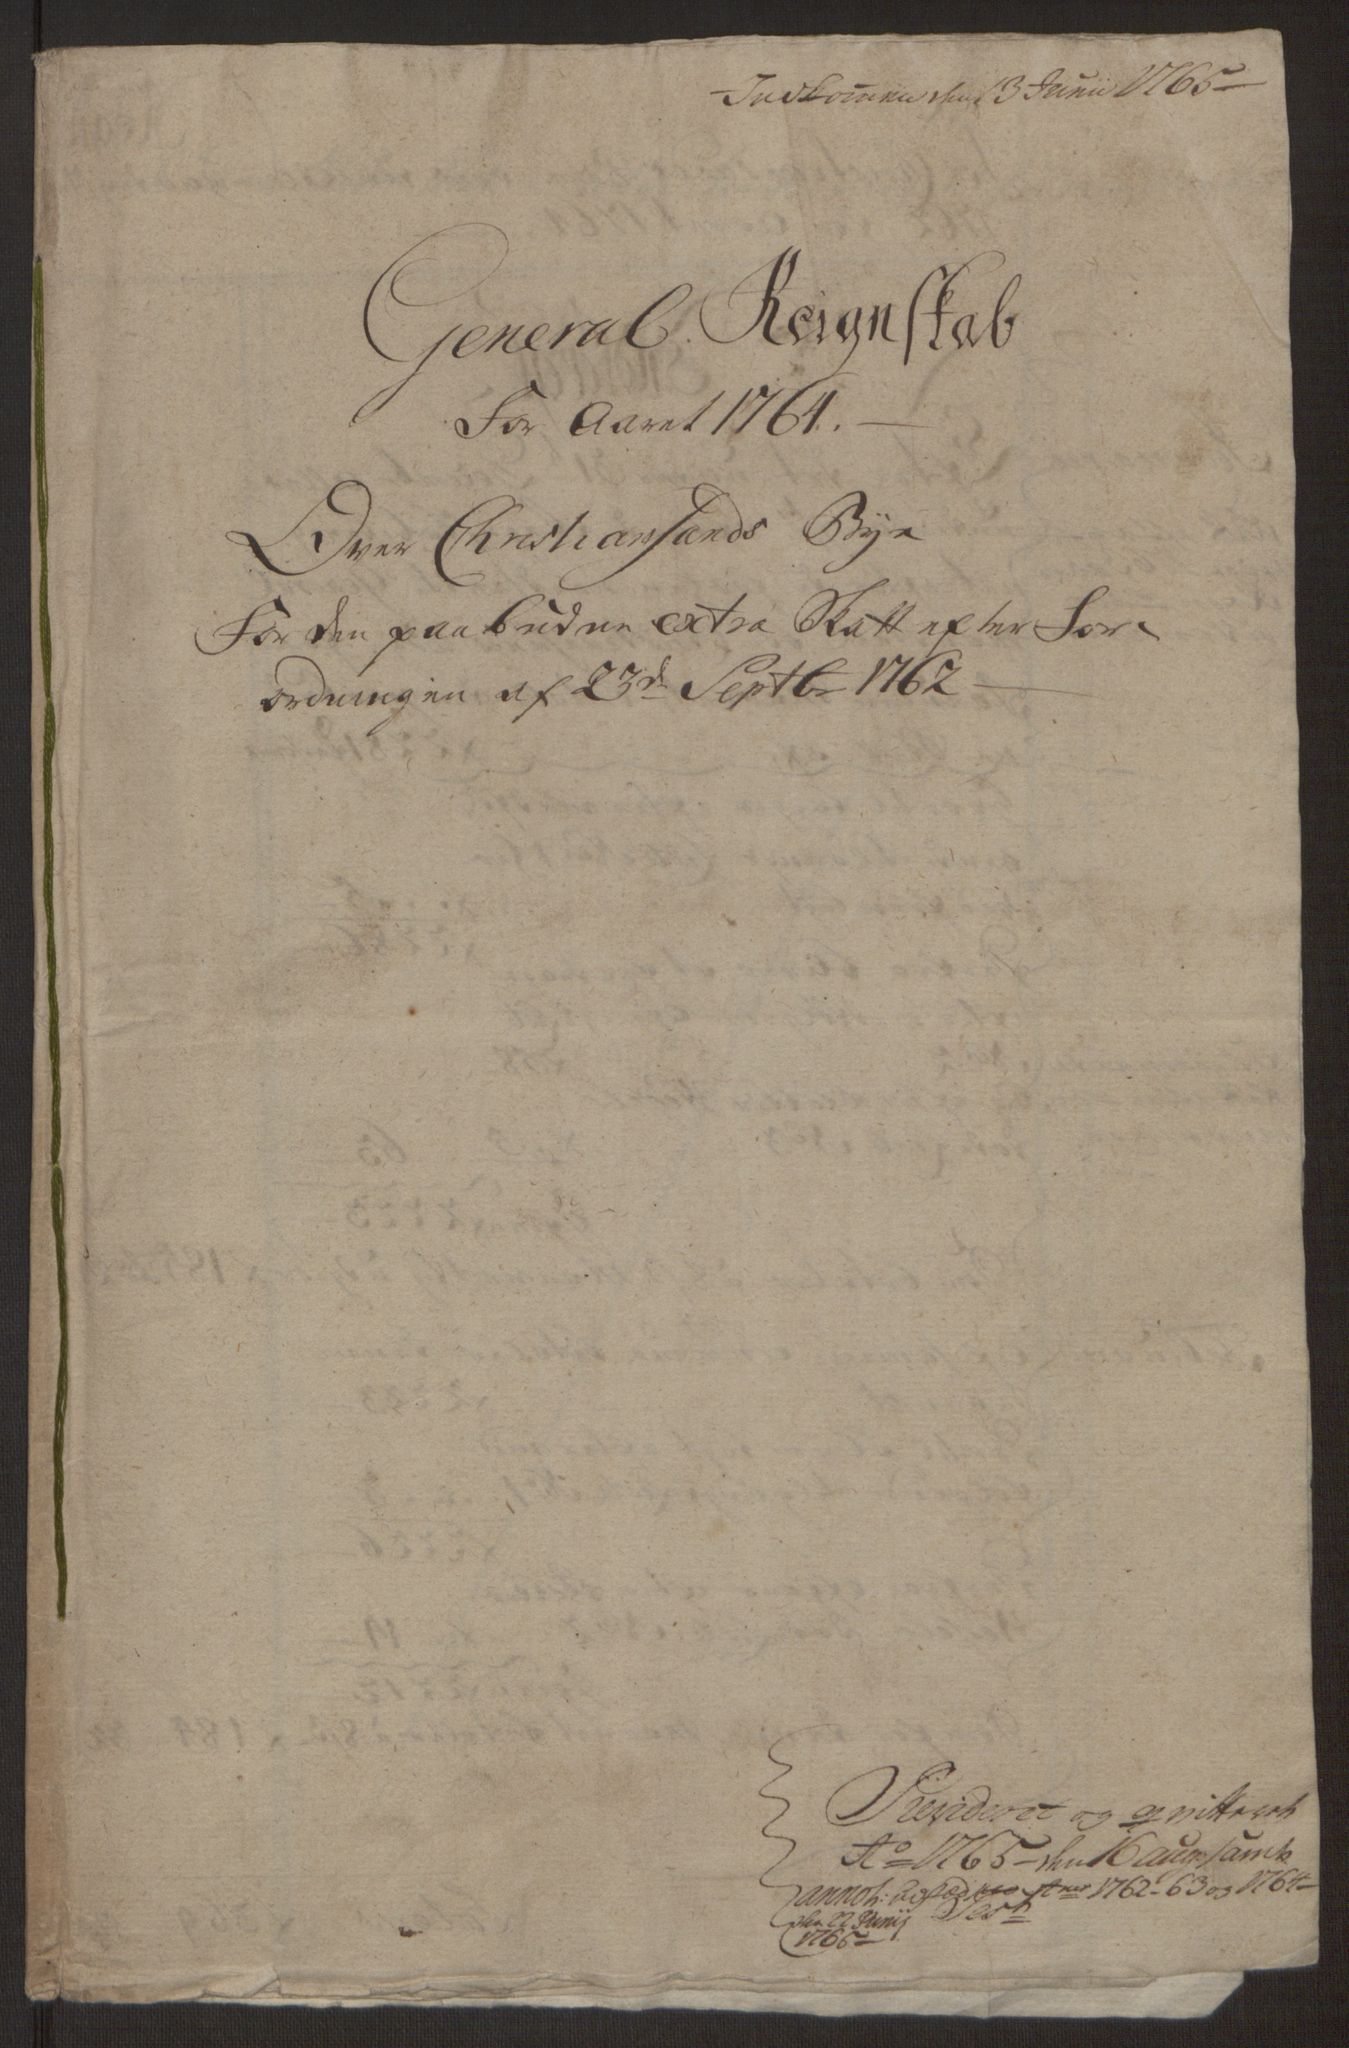 Indkommen den 13 Junii 1765
General Reignskab
For Aaret 1764.
Over Christiansands Bye
For den paabudne extra Skatt efter For-
ordningen af 23de Septbr 1762
Revideret og qvitteret
Ao 1765 den 16 aug. samt
annot:
Aner 1762-63 og 1764
den 22 Junij
1765